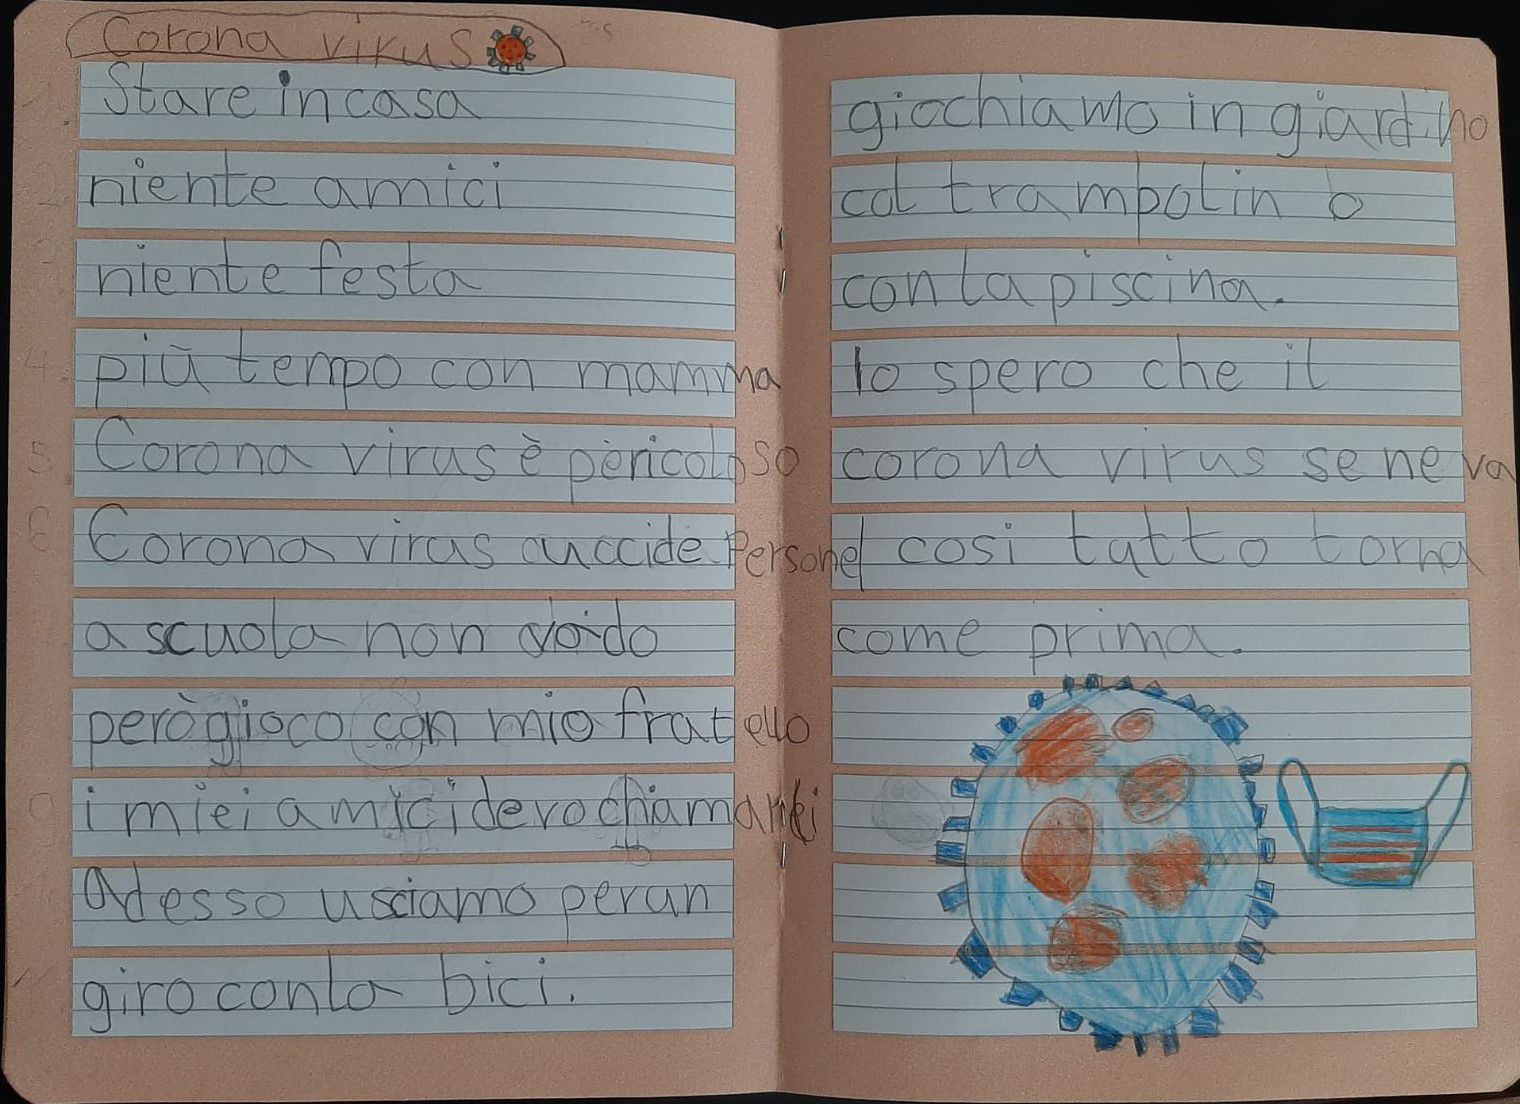 Corona virus
Stare in casa
niente amici
niente festa
più tempo con mamma
Corona virus è pericoloso
Corona virus uccide Persone
a scuola non vado
però gioco con mio fratello
i miei amici devo chiamarli
Adesso usciamo per un
giro con la bici.
giochiamo in giardino
col trampolino
con la piscina.
Io spero che il
corona virus se ne va
cosi tutto torna
come prima.